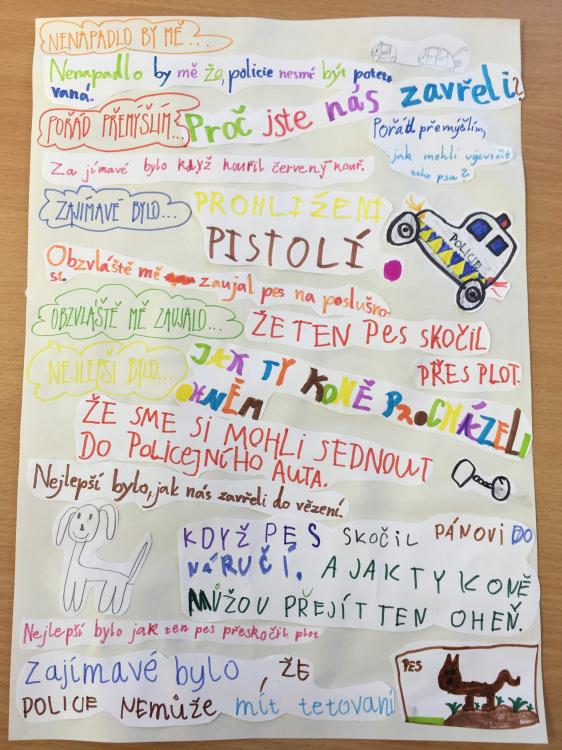 NENAPADLO BY MĚ...
Nenapadlo by mě že, policie nesmí být poteto
vaná.
POŘÁD PŘEMÝŠLÍM...
Proč jste nás zavřeli?
Pořád přemýšlím,
jak mohli vycvičit
toho psa?
Za jímavé bylo když kouřil červený kouř.
ZAJÍMAVÉ BYLO...
PROHLIŽENÍ
PISTOLÍ.
POLICIE
Obzvláště mě zaujal pes na poslušno-
st.
OBZVLÁŠTĚ MĚ ZAUJALO...
ŽE TEN Pes SKOČIL
PŘES PLOT.
NEJLEPŠÍ BYLO...
JAK TY KONĚ PROCHÁZELI
OHNĚM
ŽE SME SI MOHLI SEDNOUT
DO POLICEJNÍHO AUTA.
Nejlepší bylo, jak nás zavřeli do vězení.
KDYŽ PES SKOČIL PÁNOVI DO
NÁRUČÍ. A JAK TY KONĚ
MŮŽOU PŘEJÍT TEN OHEŇ.
Nejlepší bylo jak ten pes přeskočil plot
Zajímavé bylo, ŽE
POLICIE NEMŮŽE mít tetovaní
PES